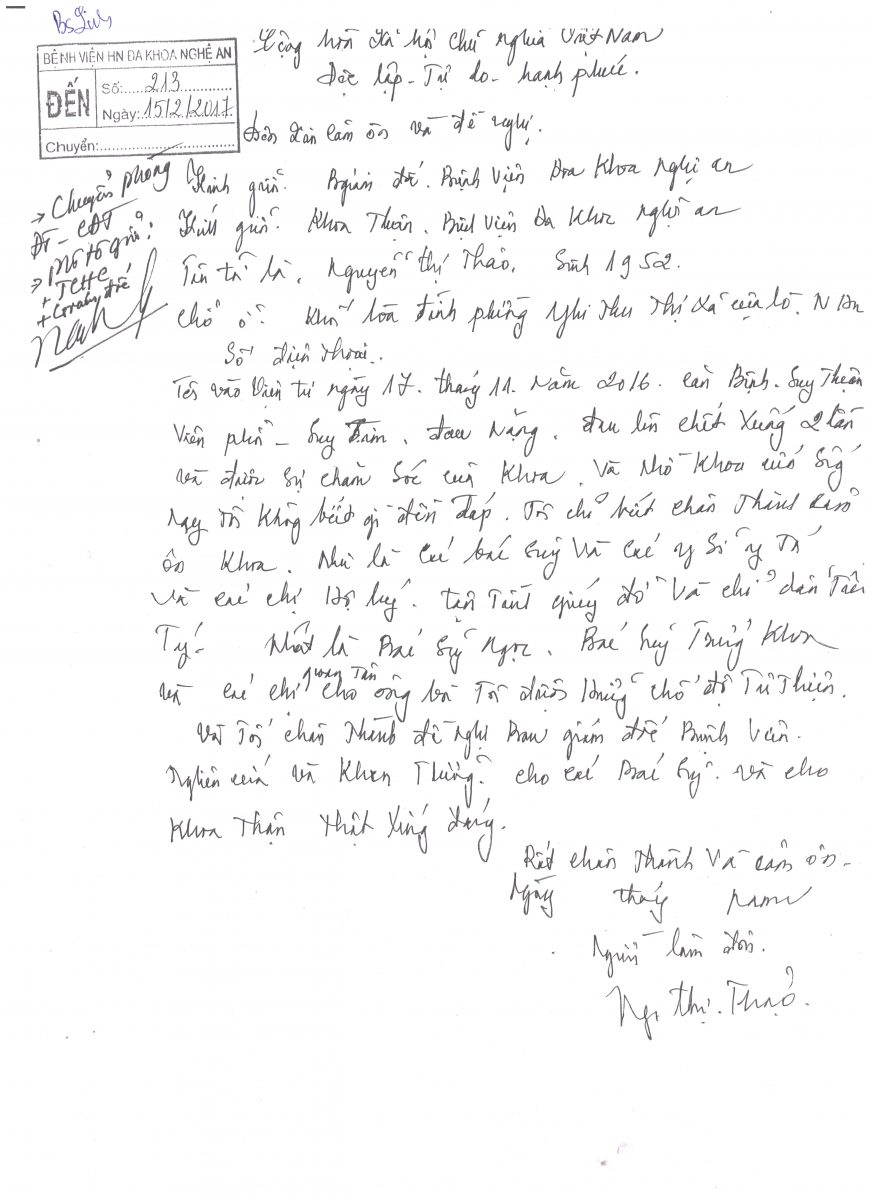 Bs Linh
BỆNH VIỆN HN ĐA KHOA NGHỆ AN
ĐẾN
Số: 213
Ngày: 15/2/2017
Chuyển:
→ Chuyển phòng
ĐD - CĐT
→ Mô tô giải:
+ TCHC
Cộng hòa xã hội chủ nghĩa Việt Nam
Độc lập - Tự do - hạnh phúc.
Đơn xin cảm ơn và đề nghị.
Kính gửi: Bgiám đốc. Bệnh Viện Đa Khoa Nghệ an
Kính gửi: Khoa Thận. Bệnh Viện Đa Khoa nghệ an
Tên tôi là, Nguyễn Thị Thảo, Sinh 1952.
Chỗ ở: Khối hòa đình phường Nghi Thu Thị Xã cửa lò. N An
Số điện thoại..
Tôi vào Viện từ ngày 17. tháng 11. Năm 2016. căn Bệnh. Suy Thận
Viêm phổi - Suy Tim. đau Nặng. đau lên chết Xuống 2 lần
và được Sự chăm Sóc của Khoa. Và Nhờ Khoa cứu Sống
Nay tôi Không biết gì đền đáp. Tôi chỉ biết chân Thành cảm
ơn Khoa. Như là các bác Sỹ Và các y Sĩ y Tá
Và các chị Hộ lý. tận Tình giúp đỡ Và chỉ dẫn Tận
Tý - Nhất là Bác Sỹ Ngọc. Bác Sỹ Trưởng Khoa
và các chị quan Tâm cho ông bà Tôi được Hưởng chế độ Từ Thiện.
Và Tôi chân Thành đề nghị Ban giám đốc Bệnh Viện.
Nghiên cứu và Khen Thưởng cho các Bác Sỹ. và cho
Khoa Thận Thật Xứng đáng.
Rất chân Thành Và cảm ơn -
Ngày tháng năm
Người làm đơn.
Ng. Thị. Thảo.